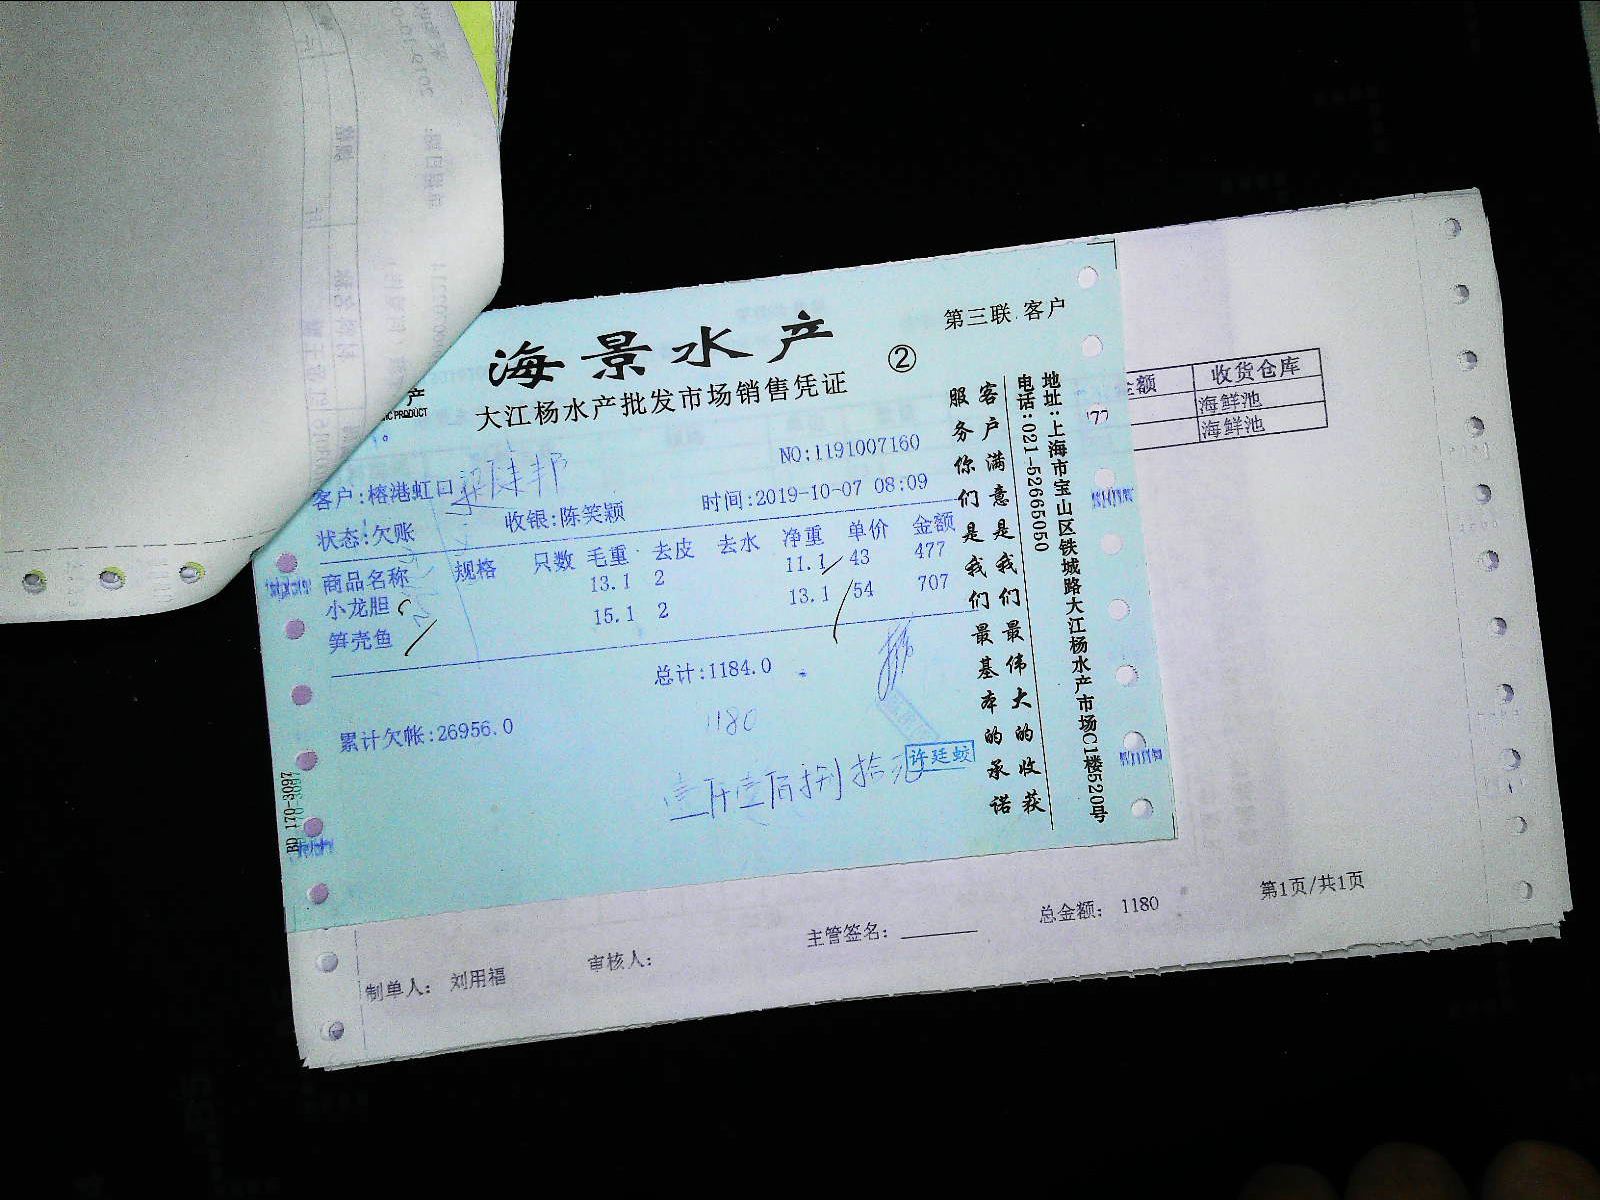 海景水产
②
第三联 客户
大江杨水产批发市场销售凭证
产
IC PRODUCT
NO:1191007160
客户:榕港虹口
状态:欠账
收银:陈笑颖
时间:2019-10-07 08:09
商品名称 规格 只数 毛重 去皮 去水 净重 单价 金额
小龙胆 13.1 2 11.1 43 477
笋壳鱼 15.1 2 13.1 54 707
总计:1184.0
累计欠帐:26956.0
1180
壹仟壹佰捌拾元
许廷蛟
客户满意是我们最伟大的收获
服务你们是我们最基本的承诺
地址:上海市宝山区铁城路大江杨水产市场C1楼520号
电话:021-52665050
BD 170-3097
金额 收货仓库
77 海鲜池
海鲜池
制单人: 刘用福
审核人:
主管签名:
总金额: 1180
第1页/共1页